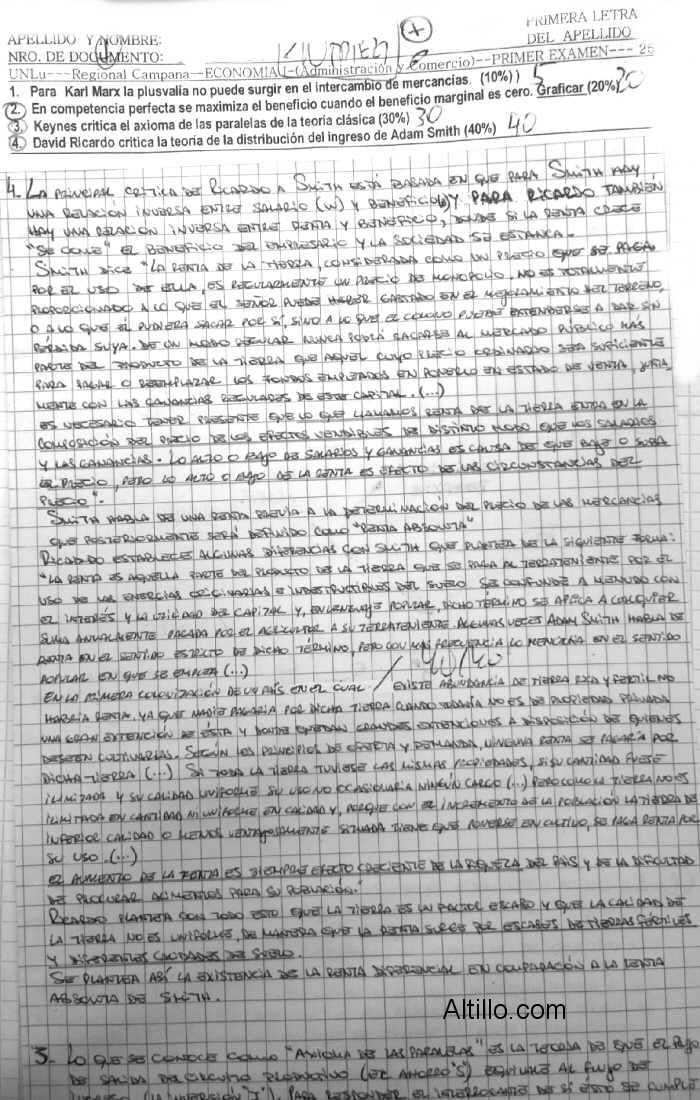 PRIMERA LETRA
APELLIDO Y NOMBRE: DEL APELLIDO
NRO. DE DOCUMENTO:
UNLu---Regional Campana--ECONOMIA I-(Administración y Comercio)--PRIMER EXAMEN--- 25
1. Para Karl Marx la plusvalía no puede surgir en el intercambio de mercancías. (10%) ) 5
2. En competencia perfecta se maximiza el beneficio cuando el beneficio marginal es cero. Graficar (20%) 20
3. Keynes critica el axioma de las paralelas de la teoría clásica (30%) 30
4. David Ricardo critica la teoría de la distribución del ingreso de Adam Smith (40%) 40
4. LA PRINCIPAL CRÍTICA DE RICARDO A SMITH ESTÁ BASADA EN QUE PARA SMITH HAY
UNA RELACIÓN INVERSA ENTRE SALARIO (W) Y BENEFICIO Y PARA RICARDO TAMBIÉN
HAY UNA RELACIÓN INVERSA ENTRE RENTA Y BENEFICIO, DONDE SI LA RENTA CRECE
"SE COME" EL BENEFICIO DEL EMPRESARIO Y LA SOCIEDAD SE ESTANCA.
SMITH DICE "LA RENTA DE LA TIERRA, CONSIDERADA COMO UN PRECIO QUE SE PAGA
POR EL USO DE ELLA, ES REGULARMENTE UN PRECIO DE MONOPOLIO. NO ES TOTALMENTE
PROPORCIONADO A LO QUE EL SEÑOR PUEDE HABER GASTADO EN EL MEJORAMIENTO DEL TERRENO,
O A LO QUE ÉL PUDIERA SACAR POR SÍ, SINO A LO QUE EL COLONO PUEDE EXTENDERSE A DAR SIN
PÉRDIDA SUYA. DE UN MODO REGULAR NUNCA PODRÁ SACARSE AL MERCADO PÚBLICO MÁS
PARTE DEL PRODUCTO DE LA TIERRA QUE AQUEL CUYO PRECIO ORDINARIO SEA SUFICIENTE
PARA PAGAR O REEMPLAZAR LOS FONDOS EMPLEADOS EN PONERLO EN ESTADO DE VENTA, JUNTA
MENTE CON LAS GANANCIAS REGULARES DE ESTE CAPITAL. (...)
ES NECESARIO TENER PRESENTE QUE LO QUE LLAMAMOS RENTA DE LA TIERRA ENTRA EN LA
COMPOSICIÓN DEL PRECIO DE LOS EFECTOS VENDIBLES DE DISTINTO MODO QUE LOS SALARIOS
Y LAS GANANCIAS. LO ALTO O BAJO DE SALARIOS Y GANANCIAS ES CAUSA DE QUE BAJE O SUBA
EL PRECIO, PERO LO ALTO O BAJO DE LA RENTA ES EFECTO DE LAS CIRCUNSTANCIAS DEL
PRECIO".
SMITH HABLA DE UNA RENTA PREVIA A LA DETERMINACIÓN DEL PRECIO DE LAS MERCANCÍAS
QUE POSTERIORMENTE SERÁ DEFINIDO COMO "RENTA ABSOLUTA"
RICARDO ESTABLECE ALGUNAS DIFERENCIAS CON SMITH QUE PLANTEA DE LA SIGUIENTE FORMA:
"LA RENTA ES AQUELLA PARTE DEL PRODUCTO DE LA TIERRA QUE SE PAGA AL TERRATENIENTE POR EL
USO DE LAS ENERGÍAS ORIGINARIAS E INDESTRUCTIBLES DEL SUELO. SE CONFUNDE A MENUDO CON
EL INTERÉS Y LA UTILIDAD DEL CAPITAL Y, EN LENGUAJE POPULAR, DICHO TÉRMINO SE APLICA A CUALQUIER
SUMA ANUALMENTE PAGADA POR EL AGRICULTOR A SU TERRATENIENTE. ALGUNAS VECES ADAM SMITH HABLA DE
RENTA EN EL SENTIDO ESTRICTO DE DICHO TÉRMINO, PERO CON MÁS FRECUENCIA LO MENCIONA EN EL SENTIDO
POPULAR EN QUE SE EMPLEA (...) 40/40
EN LA PRIMERA COLONIZACIÓN DE UN PAÍS EN EL CUAL / EXISTE ABUNDANCIA DE TIERRA RICA Y FERTIL NO
HABRÍA RENTA. YA QUE NADIE PAGARÍA POR DICHA TIERRA CUANDO TODAVÍA NO ES DE PROPIEDAD PRIVADA
UNA GRAN EXTENCIÓN DE ÉSTA Y DONDE QUEDAN GRANDES EXTENCIONES A DISPOSICIÓN DE QUIENES
DESEEN CULTIVARLAS. SEGÚN LOS PRINCIPIOS DE OFERTA Y DEMANDA, NINGUNA RENTA SE PAGARÍA POR
DICHA TIERRA (...) SI TODA LA TIERRA TUVIESE LAS MISMAS PROPIEDADES, SI SU CANTIDAD FUESE
ILIMITADA Y SU CALIDAD UNIFORME SU USO NO OCASIONARÍA NINGÚN CARGO (...) PERO COMO LA TIERRA NO ES
ILIMITADA EN CANTIDAD NI UNIFORME EN CALIDAD Y, PORQUE CON EL INCREMENTO DE LA POBLACIÓN LA TIERRA DE
INFERIOR CALIDAD O MENOS VENTAJOSAMENTE SITUADA TIENE QUE PONERSE EN CULTIVO, SE PAGA RENTA POR
SU USO. (...)
EL AUMENTO DE LA RENTA ES SIEMPRE EFECTO CRECIENTE DE LA RIQUEZA DEL PAÍS Y DE LA DIFICULTAD
DE PROCURAR ALIMENTOS PARA SU POBLACIÓN."
RICARDO PLANTEA CON TODO ESTO QUE LA TIERRA ES UN FACTOR ESCASO Y QUE LA CALIDAD DE
LA TIERRA NO ES UNIFORME, DE MANERA QUE LA RENTA SURGE POR ESCASES DE TIERRAS FÉRTILES
Y DIFERENTES CALIDADES DE SUELO.
SE PLANTEA ASÍ LA EXISTENCIA DE LA RENTA DIFERENCIAL EN COMPARACIÓN A LA RENTA
ABSOLUTA DE SMITH.
Altillo.com
3. LO QUE SE CONOCE COMO "AXIOMA DE LAS PARALELAS" ES LA TEORÍA DE QUE EL FLUJO
DE SALIDA DEL CIRCUITO PRODUCTIVO (EL AHORRO "S") EQUIVALE AL FLUJO DE
(LA INVERSIÓN "I"). PARA RESPONDER EL INTERROGANTE DE SI ÉSTO SE CUMPLE